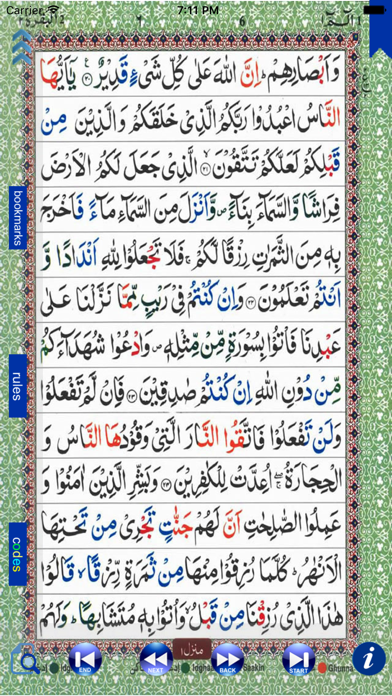 Carrier 7:11 PM
الٓمّٓ ١ 6 1 البقرة ٢
وَاَبْصَارِهِمْ ؕ اِنَّ اللّٰهَ عَلٰى كُلِّ شَیْءٍ قَدِیْرٌ ۟ ۲۰ یٰۤاَیُّهَا
النَّاسُ اعْبُدُوْا رَبَّكُمُ الَّذِیْ خَلَقَكُمْ وَالَّذِیْنَ مِنْ
قَبْلِكُمْ لَعَلَّكُمْ تَتَّقُوْنَ ۲۱ الَّذِیْ جَعَلَ لَكُمُ الْاَرْضَ
فِرَاشًا وَّالسَّمَآءَ بِنَآءً ۪ وَّاَنْزَلَ مِنَ السَّمَآءِ مَآءً فَاَخْرَجَ
بِهٖ مِنَ الثَّمَرٰتِ رِزْقًا لَّكُمْ ۚ فَلَا تَجْعَلُوْا لِلّٰهِ اَنْدَادًا وَّ
اَنْتُمْ تَعْلَمُوْنَ ۲۲ وَاِنْ كُنْتُمْ فِیْ رَیْبٍ مِّمَّا نَزَّلْنَا عَلٰى
عَبْدِنَا فَاْتُوْا بِسُوْرَةٍ مِّنْ مِّثْلِهٖ ۪ وَادْعُوْا شُهَدَآءَكُمْ
مِّنْ دُوْنِ اللّٰهِ اِنْ كُنْتُمْ صٰدِقِیْنَ ۲۳ فَاِنْ لَّمْ تَفْعَلُوْا
وَلَنْ تَفْعَلُوْا فَاتَّقُوا النَّارَ الَّتِیْ وَقُوْدُهَا النَّاسُ وَ
الْحِجَارَةُ ۖۚ اُعِدَّتْ لِلْكٰفِرِیْنَ ۲۴ وَبَشِّرِ الَّذِیْنَ اٰمَنُوْا وَ
عَمِلُوا الصّٰلِحٰتِ اَنَّ لَهُمْ جَنّٰتٍ تَجْرِیْ مِنْ تَحْتِهَا
الْاَنْهٰرُ ؕ كُلَّمَا رُزِقُوْا مِنْهَا مِنْ ثَمَرَةٍ رِّزْقًا ۙ قَالُوْا
هٰذَا الَّذِیْ رُزِقْنَا مِنْ قَبْلُ ۙ وَاُتُوْا بِهٖ مُتَشَابِهًا ؕ وَلَهُمْ
bookmarks
rules
codes
منزل ١
END
NEXT
BACK
START
i
Ghunna